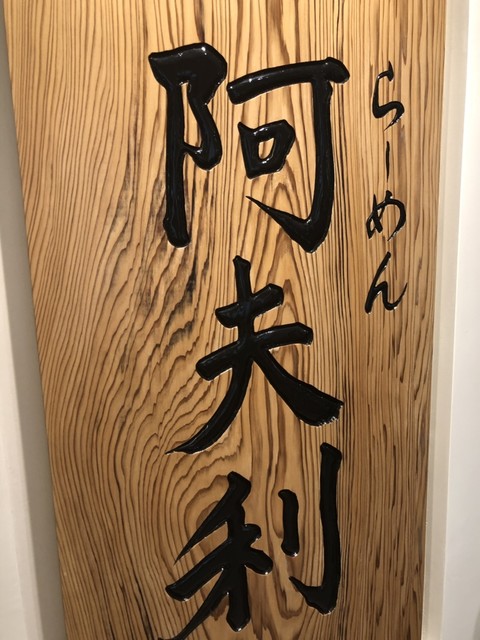 らーめん
阿夫利